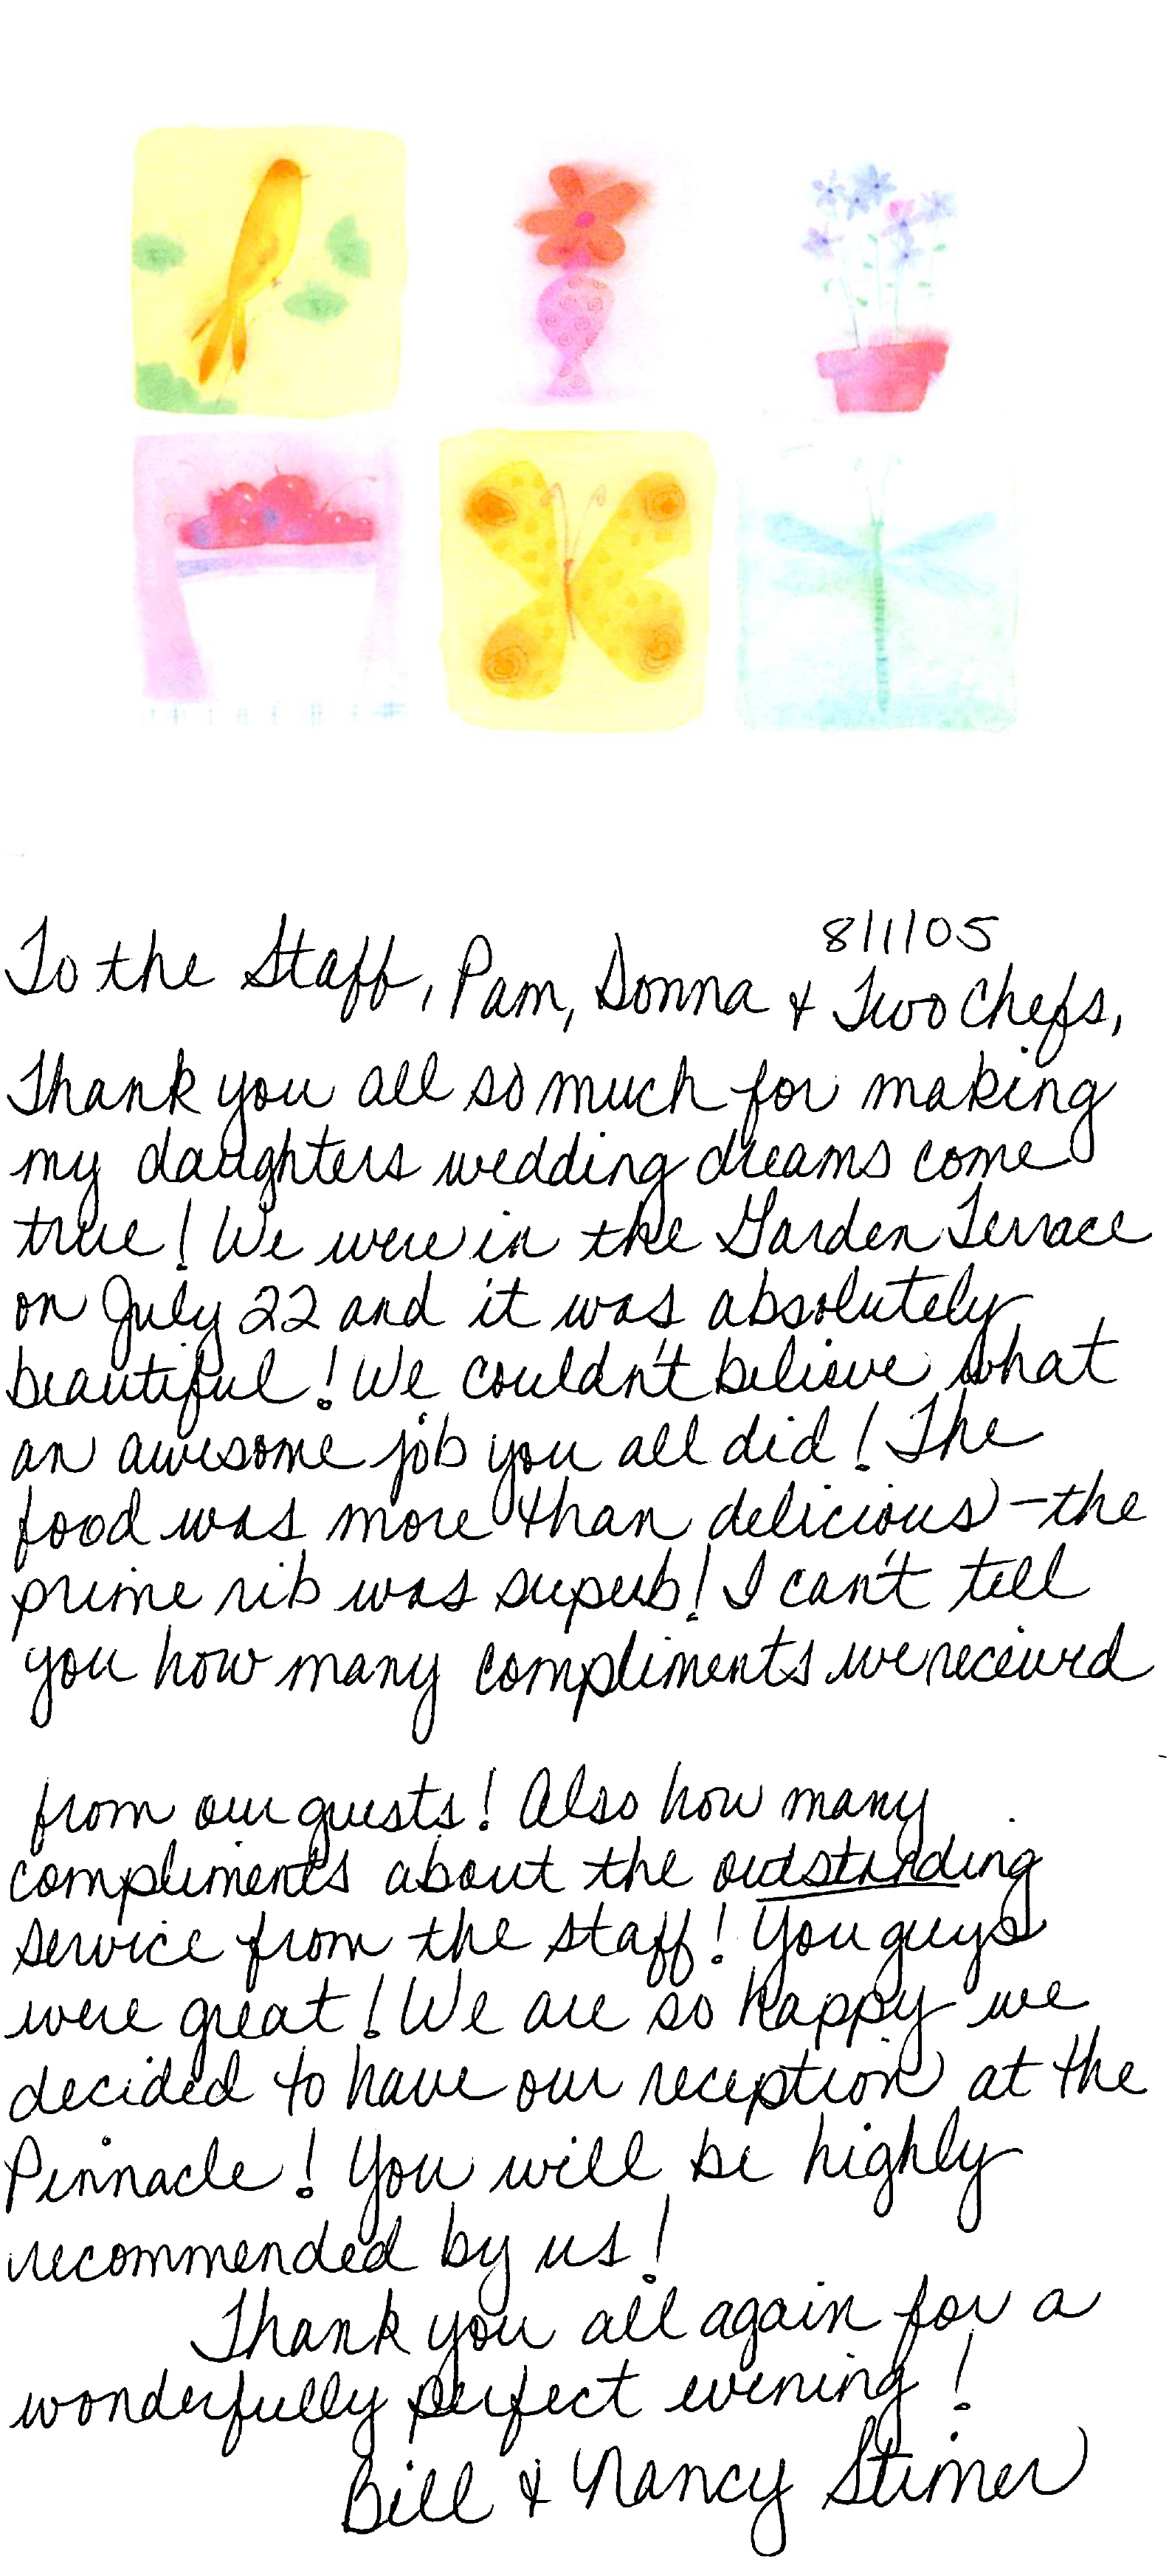 8/1/05
To the Staff, Pam, Donna & Two Chefs,
Thank you all so much for making
my daughters wedding dreams come
true! We were in the Garden Terrace
on July 22 and it was absolutely
beautiful! We couldn't believe what
an awesome job you all did! The
food was more than delicious - the
prime rib was superb! I can't tell
you how many compliments we received
from our guests! Also how many
compliments about the outstanding
service from the staff! You guys
were great! We are so happy we
decided to have our reception at the
Pinnacle! You will be highly
recommended by us!
Thank you all again for a
wonderfully perfect evening!
Bill & Nancy Stimer